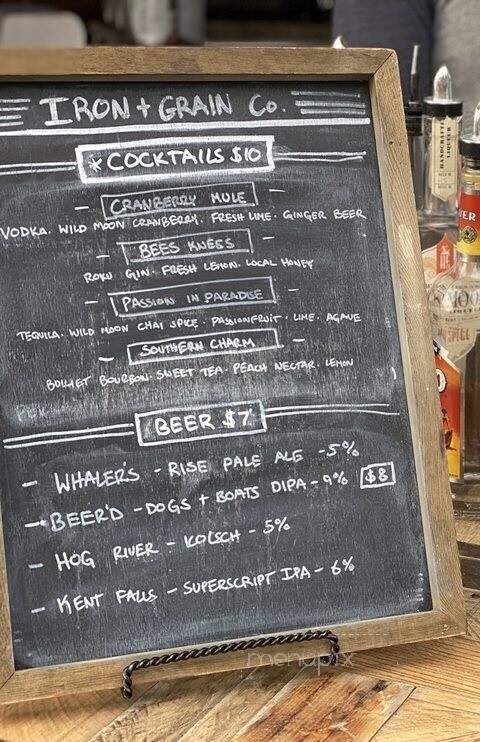 IRON + GRAIN Co.
*COCKTAILS $10
CRANBERRY MULE
VODKA. WILD MOON CRANBERRY. FRESH LIME. GINGER BEER
BEES KNEES
ROKU GIN. FRESH LEMON. LOCAL HONEY
PASSION IN PARADISE
TEQUILA. WILD MOON CHAI SPICE. PASSIONFRUIT. LIME. AGAVE
SOUTHERN CHARM
BULLIET BOURBON. SWEET TEA. PEACH NECTAR. LEMON
BEER $7
- WHALER'S - RISE PALE ALE - 5%
- BEER'D - DOGS + BOATS DIPA - 9% $8
- HOG RIVER - KOLSCH - 5%
- KENT FALLS - SUPERSCRIPT IPA - 6%
HANDCRAFTED
LIQUEUR
menupix